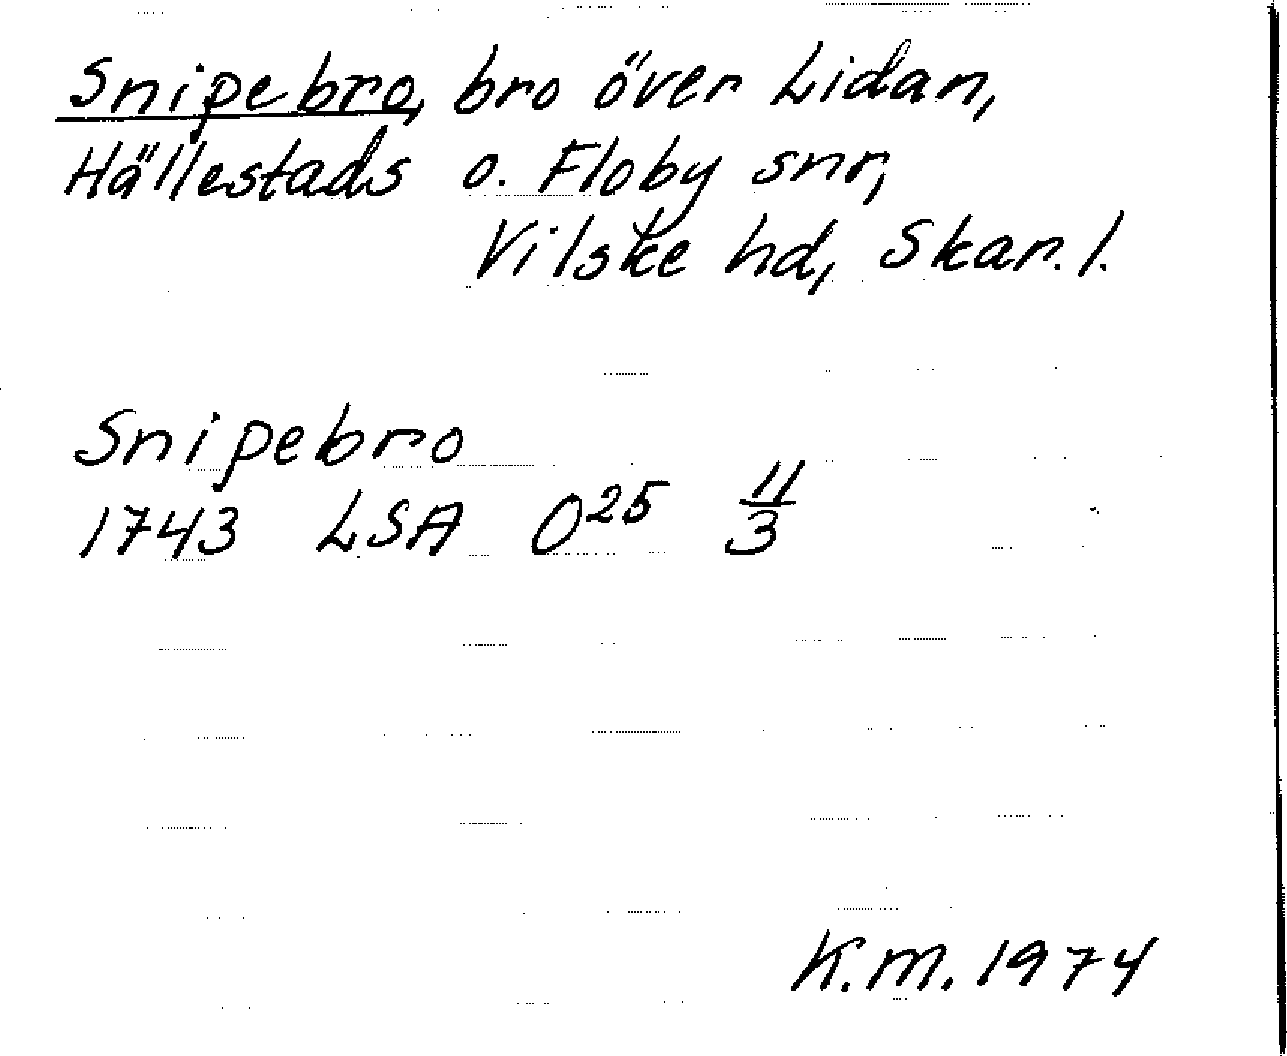 Snipebro, bro över Lidan,
Hällestads o. Floby snr,
Vilske hd, Skar. l.
Snipebro
1743 LSA O²⁵ 11/3
K.M. 1974